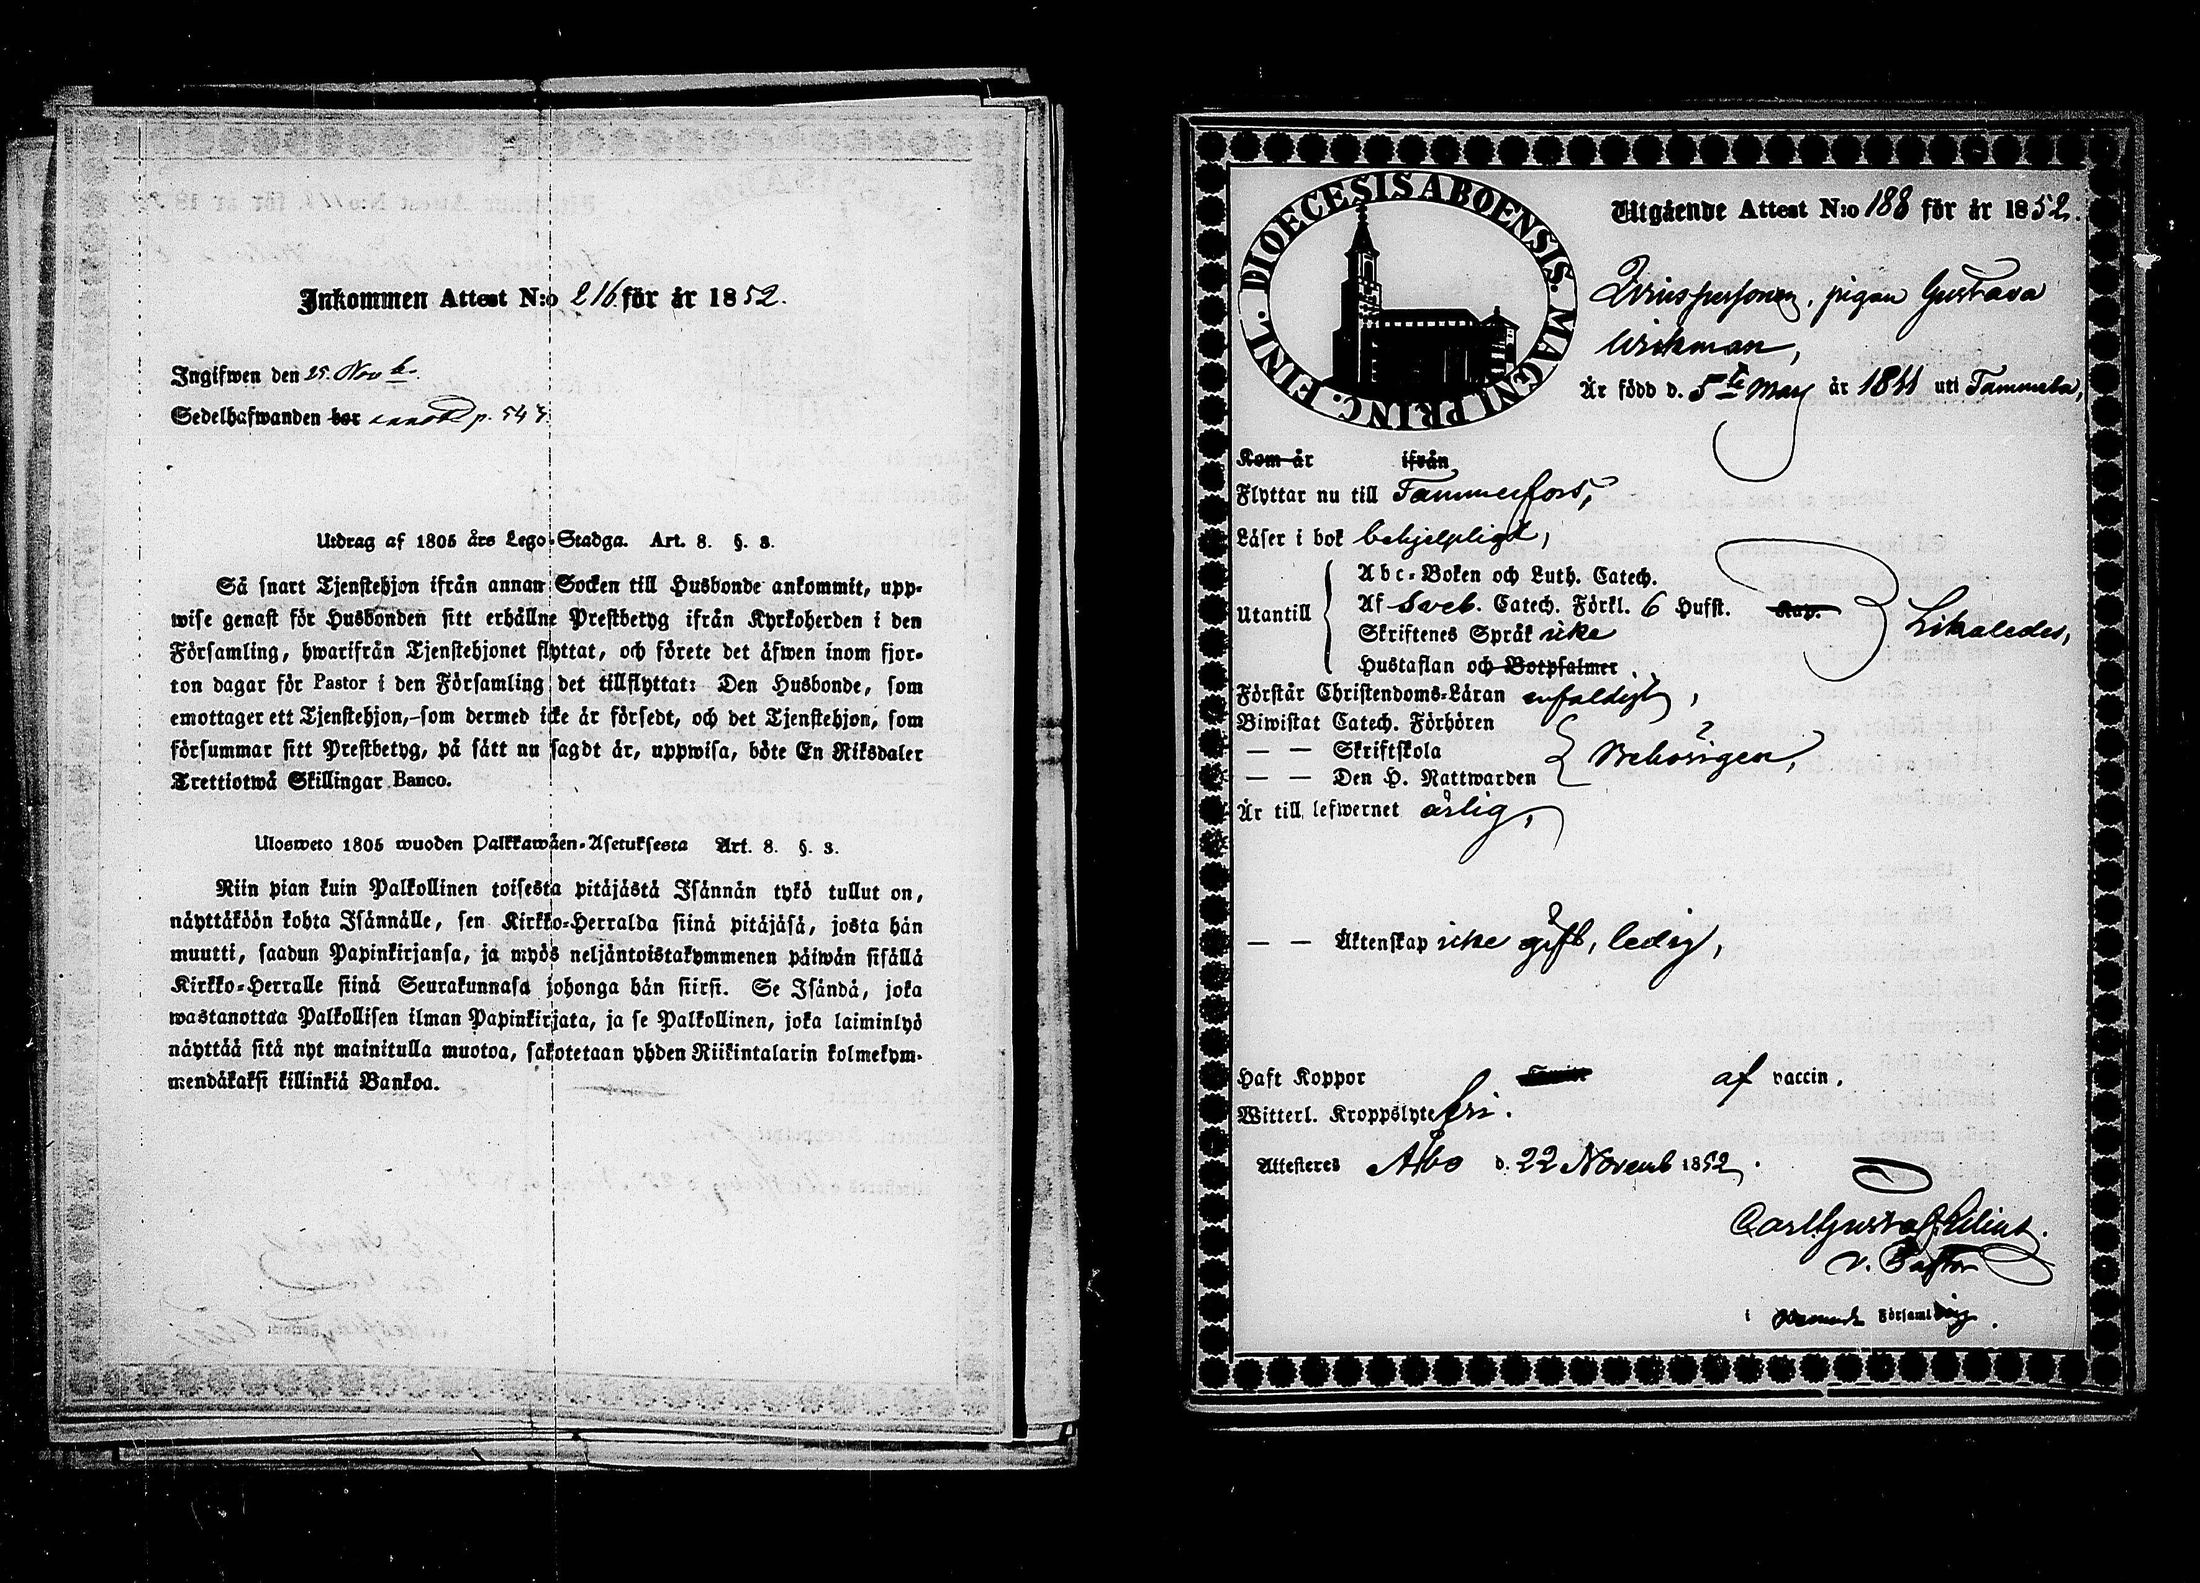 Inkommen Attest N:o 216 för år 1852.
Ingifwen den 25. Novb.
Sedelhafwanden bor p. 543.
Utdrag af 1805 års Lego-Stadga. Art. 8. §. 3.
Så snart Tjenstehjon ifrån annan Socken till Husbonde ankommit, upp-
wise genast för Husbonden sitt erhållne Prestbetyg ifrån Kyrkoherden i den
Församling, hwarifrån Tjenstehjonet flyttat, och förete det äfwen inom fjor-
ton dagar för Pastor i den Församling det tillflyttat: Den Husbonde, som
emottager ett Tjenstehjon, som dermed icke är försedt, och det Tjenstehjon, som
försummar sitt Prestbetyg, på sätt nu sagdt är, uppwisa, böte En Riksdaler
Trettiotwå Skillingar Banco.
Ulosweto 1805 wuoden Palkkawäen-Asetuksesta Art. 8. §. 3.
Niin pian kuin Palkollinen toisesta pitäjästä Isännän tykö tullut on,
näyttäköön kohta Isännälle, sen Kirkko-Herralda siinä pitäjäsä, josta hän
muutti, saadun Papinkirjansa, ja myös neljäntoistakymmenen päiwän sisällä
Kirkko-Herralle siinä Seurakunnasa johonga hän siirsi. Se Isändä, joka
wastanottaa Palkollisen ilman Papinkirjata, ja se Palkollinen, joka laiminlyö
näyttää sitä nyt mainitulla muotoa, sakotetaan yhden Riikintalarin kolmekym-
mendäkaksi killinkiä Bankoa.
DIOECESIS ABOENSIS. MAGNI PRINC. FINL.
Utgående Attest N:o 188 för år 1852.
Qvinspersonen, pigan Gustava
Wikman,
Är född d. 5te Maij år 1811 uti Tammela,
Kom år ifrån
Flyttar nu till Tammerfors,
Läser i bok behjelpligt,
Utantill
Abc-Boken och Luth. Catech.
Af Sveb. Catech. Förkl. 6 Hufst. Kap.
Skriftenes Språk icke
Hustaflan och Botpsalmer
Likaledes,
Förstår Christendoms-Läran enfaldigt,
Biwistat Catech. Förhören
— — Skriftskola
— — Den H. Nattwarden
Behörigen,
Är till lefwernet ärlig,
— — Äktenskap icke gift, ledig,
Haft Koppor af vaccin.
Witterl. Kroppslyte fri.
Attesteres Åbo d. 22 Novemb 1852.
Carl Gustaf
v. Pastor
i Församling.